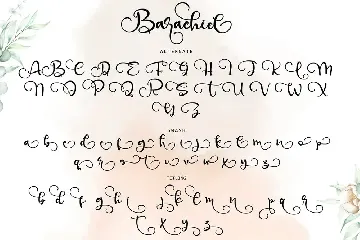 Barachiel
ALTERNATE
A B C D E F G H I J K L M
N O P Q R S T U V W X
Y Z
SWASH
a b c d e f g h i j k l m n o p
q r s t u v w x y z
b d f g h j k l m n p q r
t x y z